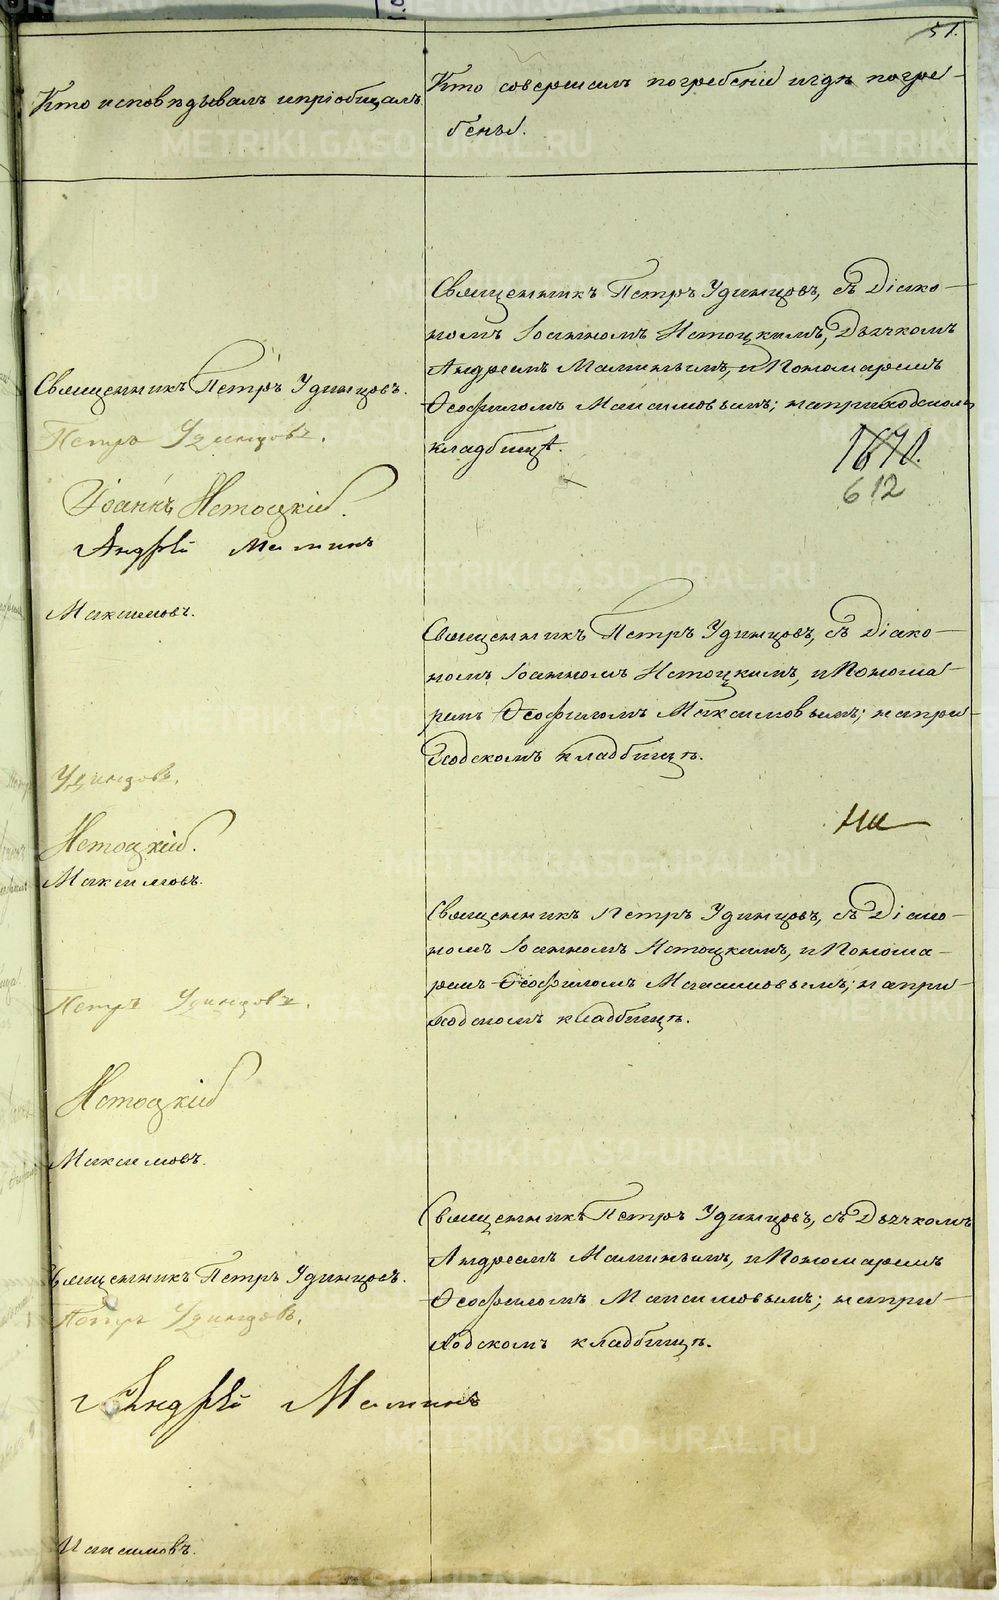 51.
Кто исповѣдывалъ и пріобщалъ
Кто совершалъ погребеніе и гдѣ погре-
бены.
Священникъ Петръ Удинцовъ, съ Діако-
номъ Іоанномъ Нетоцкимъ, Дьячкомъ
Андреемъ Маминымъ, и Пономаремъ
Ѳеофиломъ Максимовымъ; на приходскомъ
кладбищѣ.
612
Священникъ Петръ Удинцовъ.
Петръ Удинцовъ.
Іоаннъ Нетоцкій.
Андрей Маминъ
Максимовъ.
Священникъ Петръ Удинцовъ, съ Діако-
номъ Іоанномъ Нетоцкимъ, и Понома-
ремъ Ѳеофиломъ Максимовымъ; на при-
ходскомъ кладбищѣ.
Удинцовъ.
Нетоцкій.
Максимовъ.
Священникъ Петръ Удинцовъ, съ Діако-
номъ Іоанномъ Нетоцкимъ, и Понома-
ремъ Ѳеофиломъ Максимовымъ; на при-
ходскомъ кладбищѣ.
Петръ Удинцовъ.
Нетоцкій
Максимовъ.
Священникъ Петръ Удинцовъ, съ Дьячкомъ
Андреемъ Маминымъ, и Пономаремъ
Ѳеофиломъ Максимовымъ; на при-
ходскомъ кладбищѣ.
Священникъ Петръ Удинцовъ.
Петръ Удинцовъ.
Андрей Маминъ
Максимовъ.
METRIKI.GASO-URAL.RU